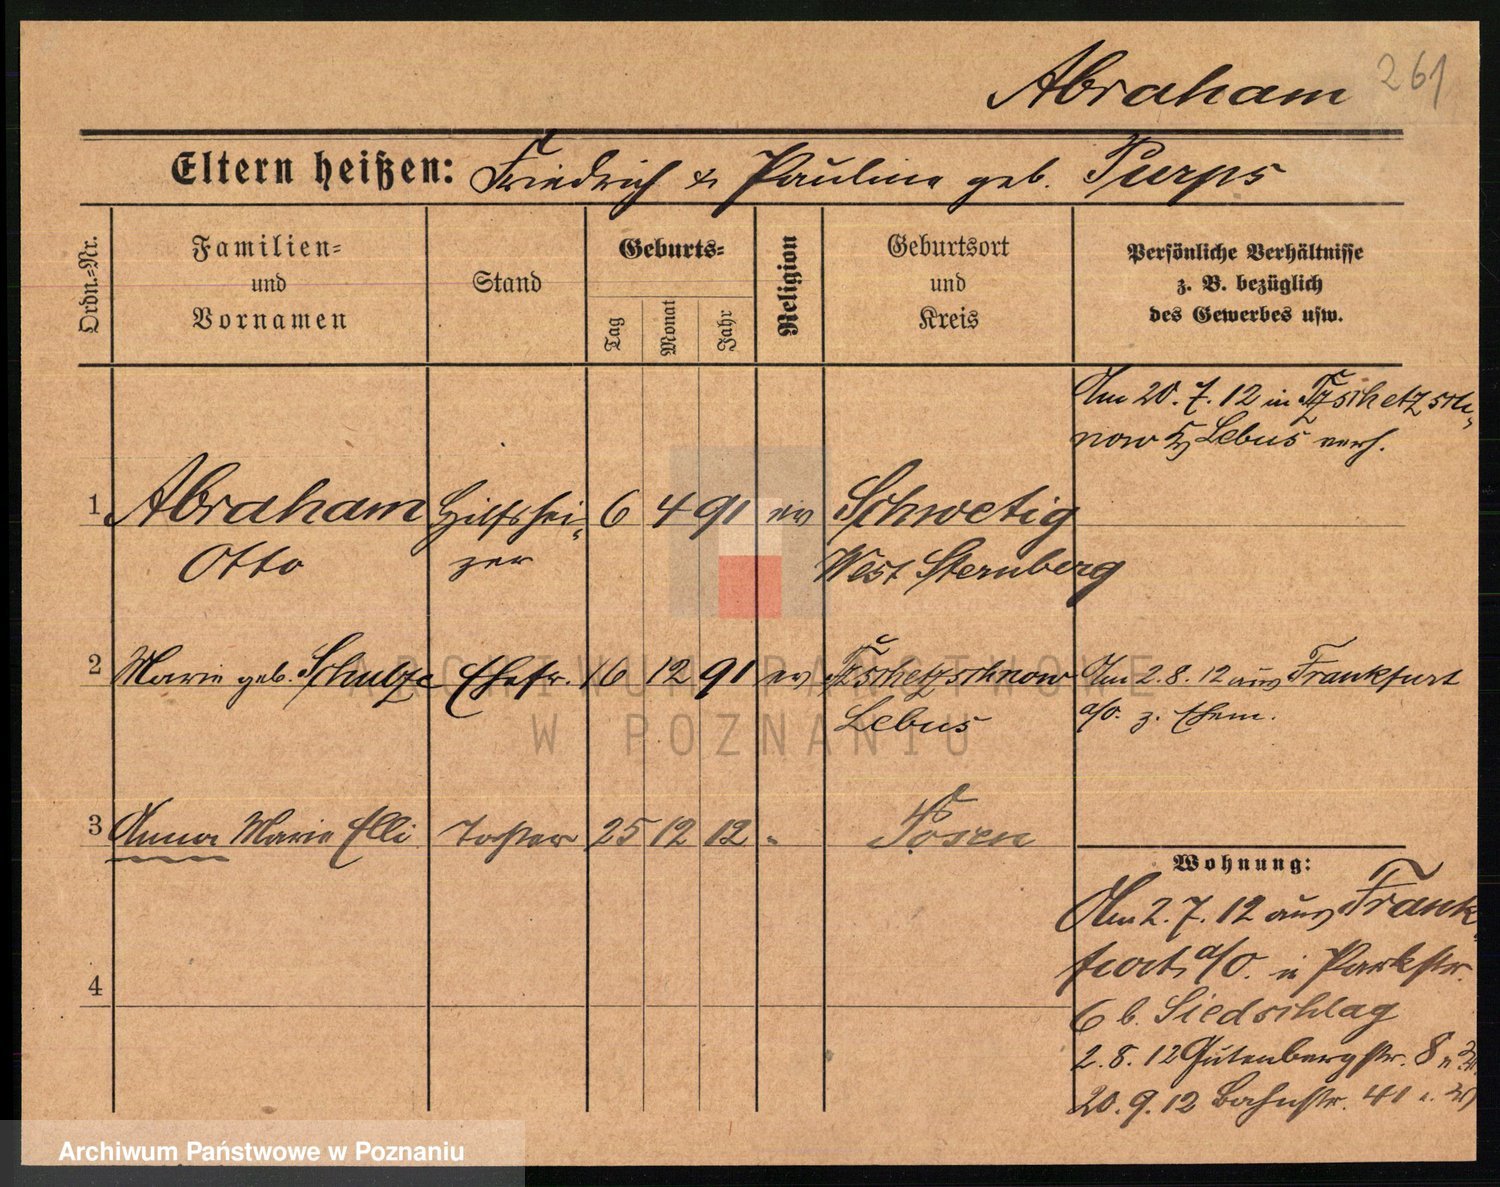 Abraham 261
Eltern heißen: Friedrich & Pauline geb. Purps
Ordn.=Nr.
Familien=
und
Vornamen
Stand
Geburts=
Tag
Monat
Jahr
Religion
Geburtsort
und
Kreis
Persönliche Verhältnisse
z. B. bezüglich
des Gewerbes usw.
Am 20. 7. 12 in Tzschetzsch=
now Lebus verh.
1 Abraham Hilfshei= 6 4 91 ev Schwetig
Otto zer West Sternberg
2 Marie geb. Schulze Ehefr. 16 12 91 ev Tzschetzschnow Am 2. 8. 12 aus Frankfurt
Lebus a/O. z. Ehem.
3 Anna Marie Elli Tochter 25 12 12 " Posen
4
Wohnung:
Am 2. 7. 12 aus Frank=
furt a/O. in Parkstr.
6 b. Siedschlag
2. 8. 12 Gutenbergstr. 8
20. 9. 12 Bahnstr. 41
ARCHIWUM PAŃSTWOWE
W POZNANIU
Archiwum Państwowe w Poznaniu